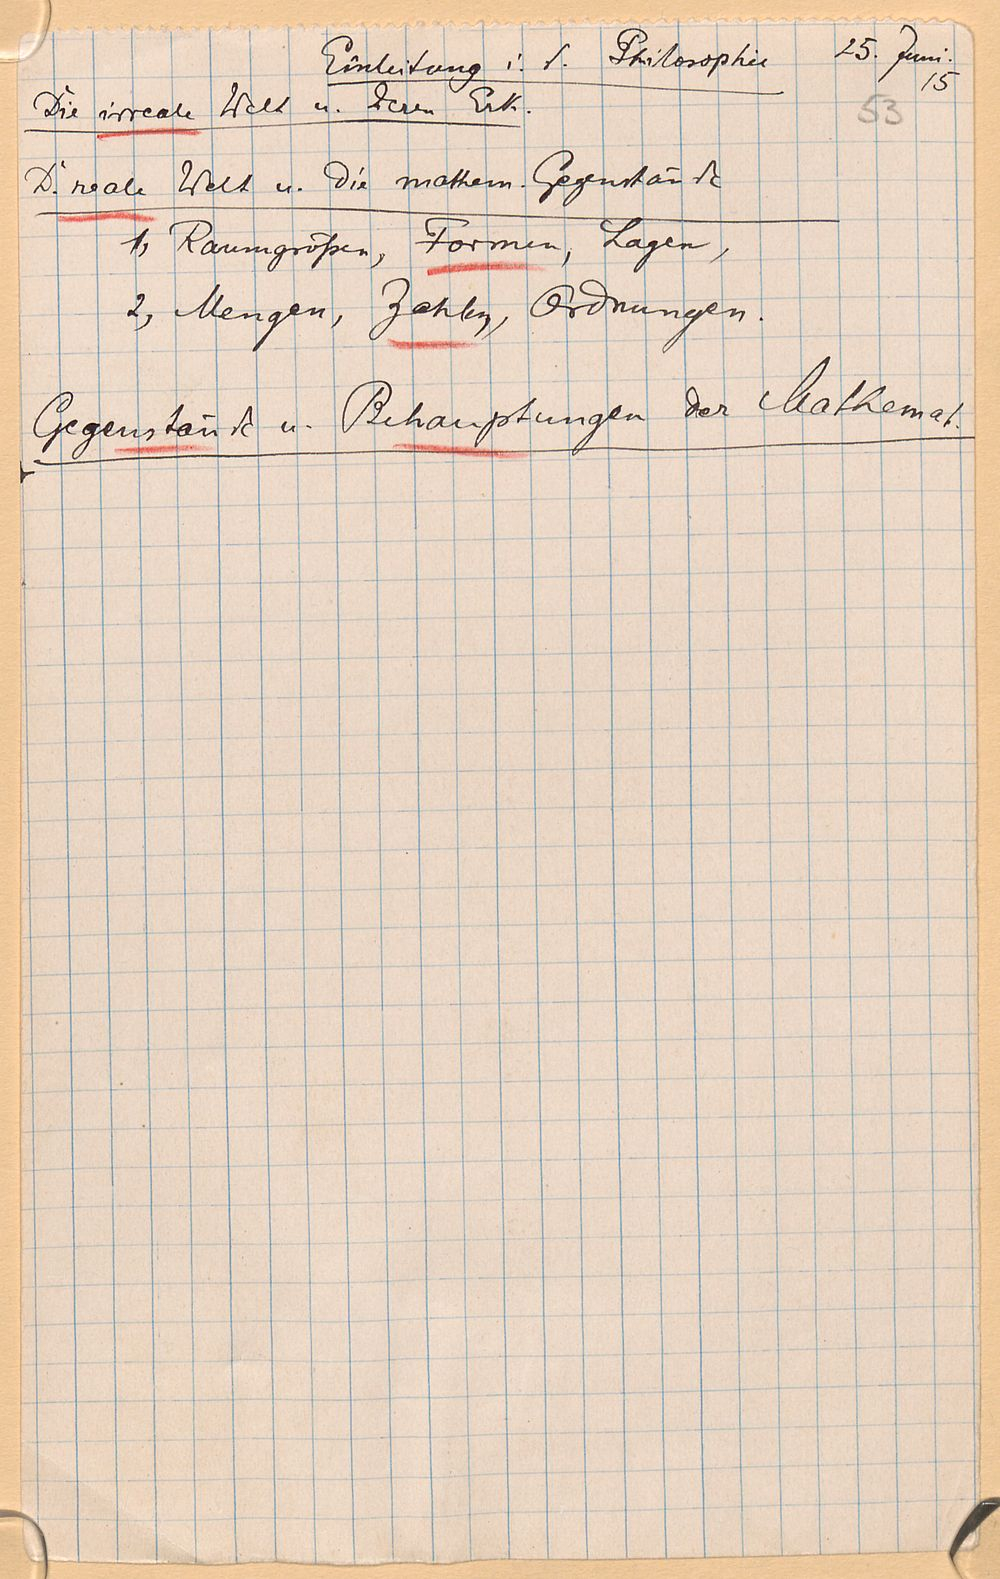 Einleitung i. d. Philosophie 25. Juni.
15
53
Die irreale Welt u. deren Erk.
D. reale Welt u. die mathem. Gegenstände
1, Raumgrößen, Formen, Lagen,
2, Mengen, Zahlen, Ordnungen.
Gegenstände u. Behauptungen der Mathemat.